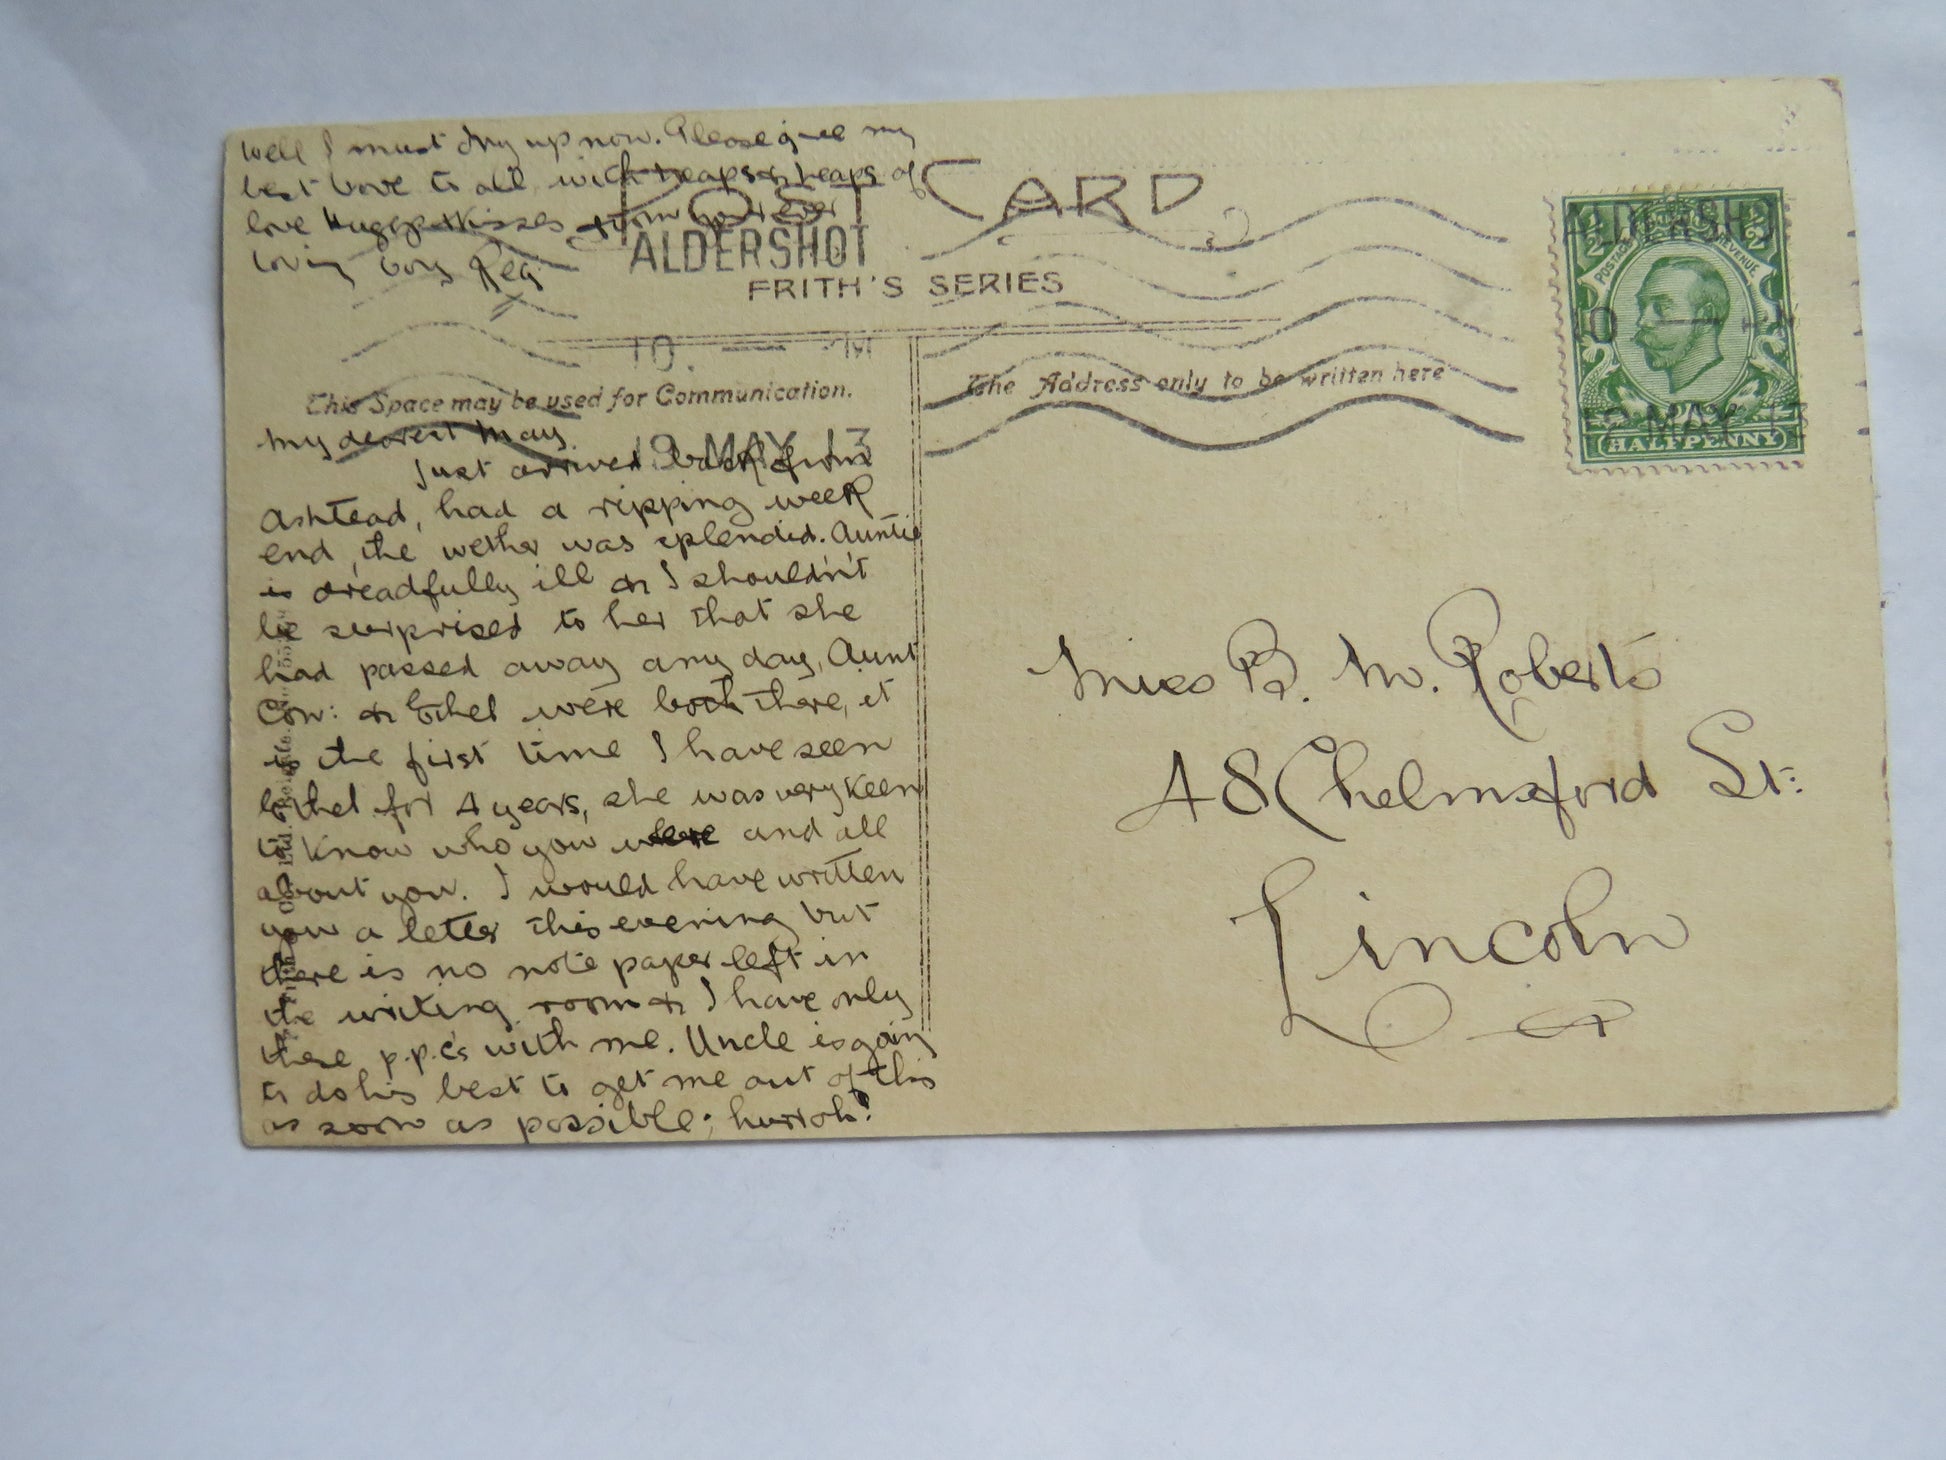 Well I must dry up now. Please give my
best love to all, with heaps & heaps of
love Hugs & Kisses from your ever
loving boy Reg
x
POST CARD
ALDERSHOT
FRITH'S SERIES
10.
12 MAY 13
This Space may be used for Communication.
The Address only to be written here
ALDERSHO
POSTAGE REVENUE
12 MAY 13
HALFPENNY
My dearest May.
Just arrived back from
Ashtead, had a ripping week
end, the wether was splendid. Auntie
is dreadfully ill & I shouldn't
be surprised to her that she
had passed away any day, Aunt
Con: & Ethel were both there, it
is the first time I have seen
Ethel for 4 years, she was very Keen
to Know who you were and all
about you. I would have written
you a letter this evening but
there is no note paper left in
the writing room & I have only
these p.p.c's with me. Uncle is going
to do his best to get me out of this
as soon as possible; hurrah!
Miss B. M. Roberts
48 Chelmsford St:
Lincoln